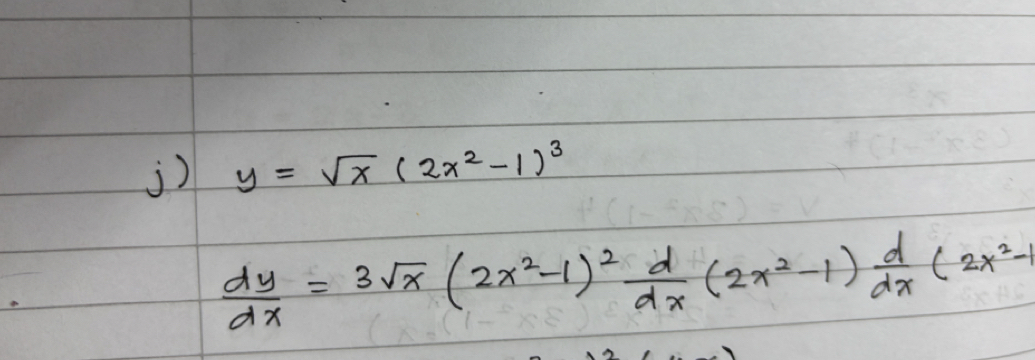 j) y = √x (2x² - 1)³
dy/dx = 3√x (2x² - 1)² d/dx (2x² - 1) d/dx (2x² - 1